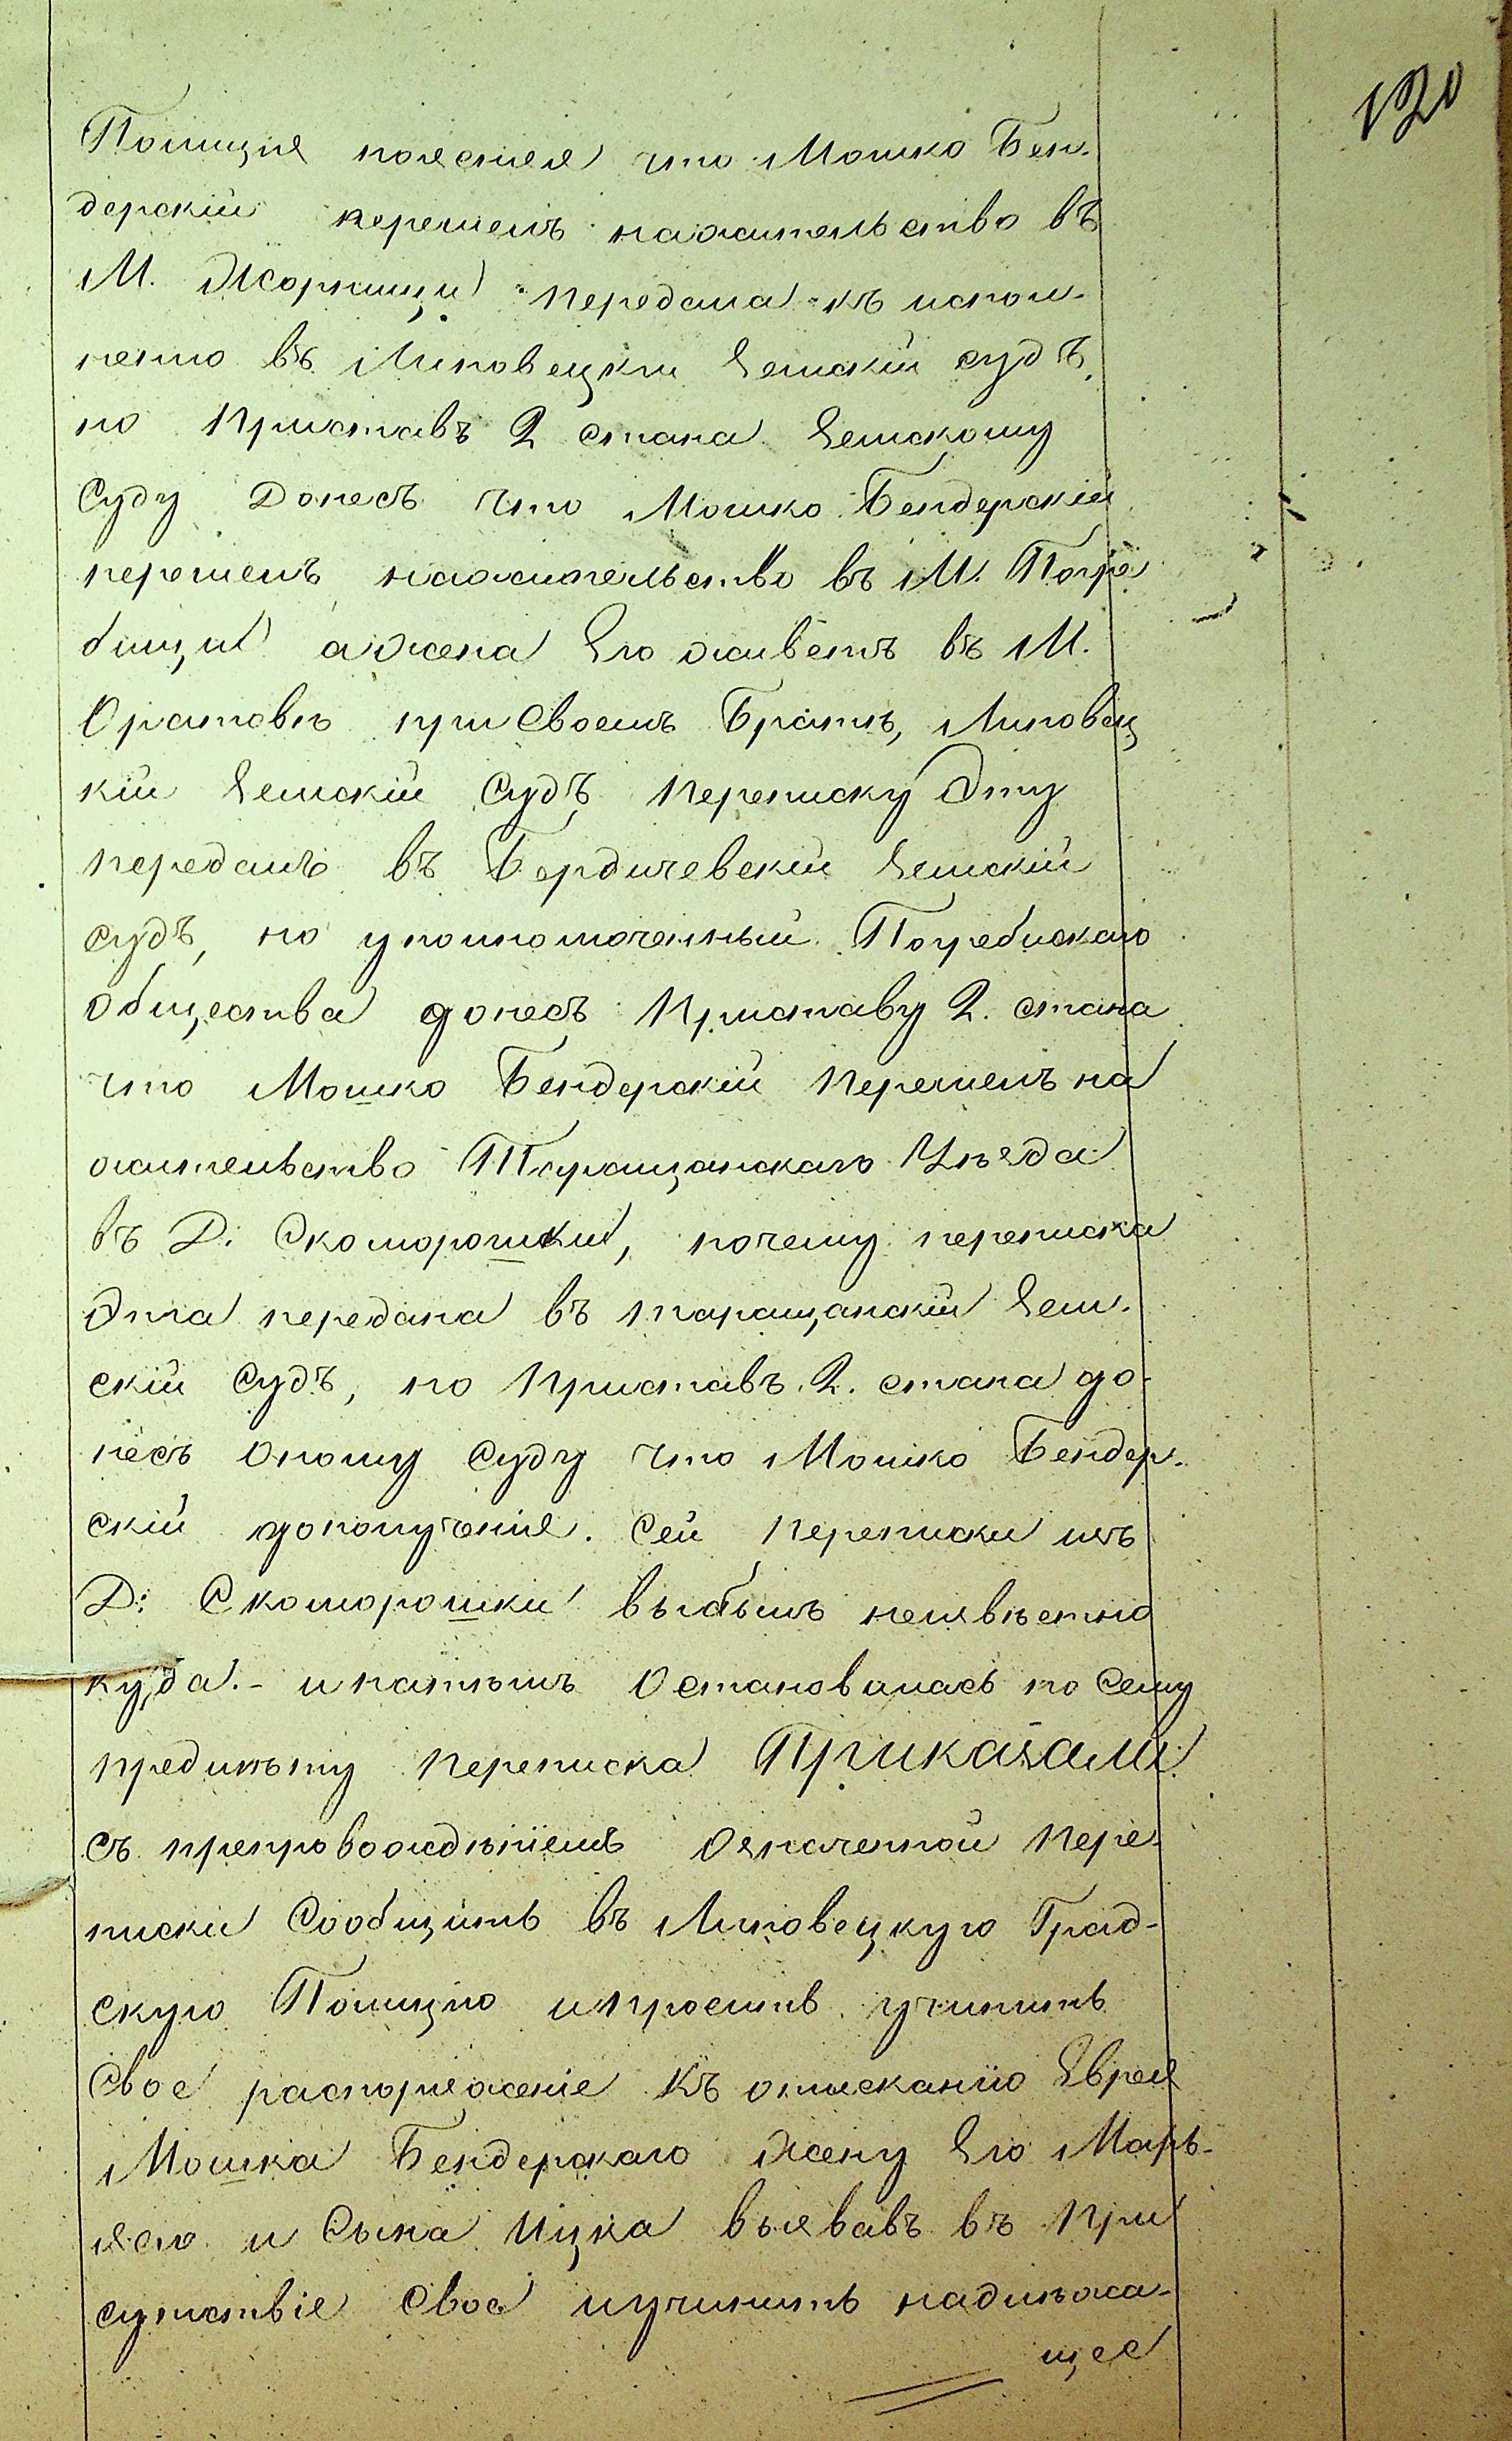 120
Полиція поясняя что Мошко Бен-
дерскій перешелъ нажительство въ
М. Жорнищи передала къ испол-
нению въ Липовецкій Земскій судъ,
но Приставъ 2 стана Земскому
Суду Донесъ что Мошко Бендерскій
перешелъ нажительство въ М. Погре
бищи а жена Его живетъ въ М.
Оратовѣ при Своемъ Братѣ, Липовец
кій Земскій Судъ переписку Эту
передалъ въ Бердичевскій Земскій
судъ, но уполномоченный Погребискаго
Общества донесъ Приставу 2. стана
что Мошко Бендерскій перешелъ на
жительство Таращанскаго Уѣзда
въ Д: Скоморошки, почему переписка
Эта передана въ таращанскій Зем-
скій Судъ, но Приставъ 2. стана до-
несъ Оному Суду что Мошко Бендер-
скій дополученія Сей переписки изъ
Д: Скоморошки выбылъ неизвѣстно
куда.- и натѣмъ Остановилась по Сему
предмѣту переписка Приказали:
съ препровождѣніемъ Означенной пере-
писки Сообщить въ Липовецкую Град-
скую Полицію и просить учинить
Свое распоряженіе къ отысканію Еврея
Мошка Бендерскаго жену Его Марь-
ясю и Сына Ицка вызвавъ въ При
сутствіе Свое иучинить надлѣжа-
щее